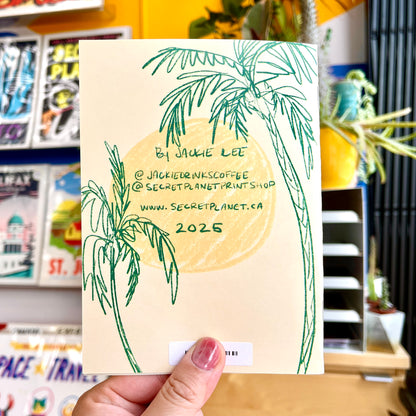 By JACKIE LEE
@JACKIEDRINKSCOFFEE
@SECRETPLANETPRINTSHOP
WWW.SECRETPLANET.CA
2025
ST. J
SPACE ★ TRAVEL